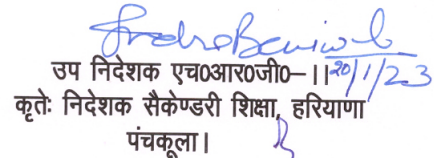 उप निदेशक एच०आर०जी०–।।
20/1/23
कृतेः निदेशक सैकेण्डरी शिक्षा, हरियाणा
पंचकूला।